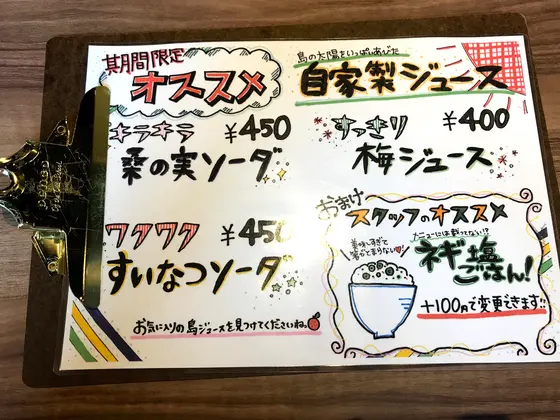 期間限定
オススメ
キラキラ ¥450
桑の実ソーダ
ワクワク ¥450
すいなつソーダ
お気に入りの島ジュースを見つけてくださいね。
島の太陽をいっぱいあびた
自家製ジュース
すっきり ¥400
梅ジュース
おまけ
スタッフのオススメ
メニューには載ってない!?
美味しすぎて
箸がとまらない
ネギ塩
ごはん!
+100円で変更できます!!